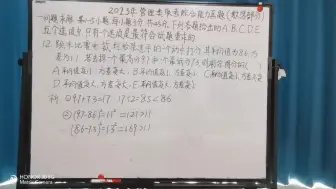 2023年管理类联考综合能力真题(数学部分)
一.问题求解:第1~15小题,每小题3分,共45分,下列每题给出的A、B、C、D、E
五个选项中,只有一个选项是最符合试题要求的.
12. 跳水比赛中,裁判给某选手的一个动作打分,其平均值为8.6,方
差为1.1,若去掉一个最高分9.7和一个最低分7.3,则剩余得分的( )
A.平均值变小,方差变大 B.平均值变小,方差变小 C.平均值变小,方差不变
D.平均值变大,方差变大 E.平均值变大,方差变小
解: ① 9.7+7.3=17 17÷2=8.5<8.6
② (9.7-8.6)²=1.1²=1.21>1.1
(8.6-7.3)²=1.3²=1.69>1.1
HONOR X10